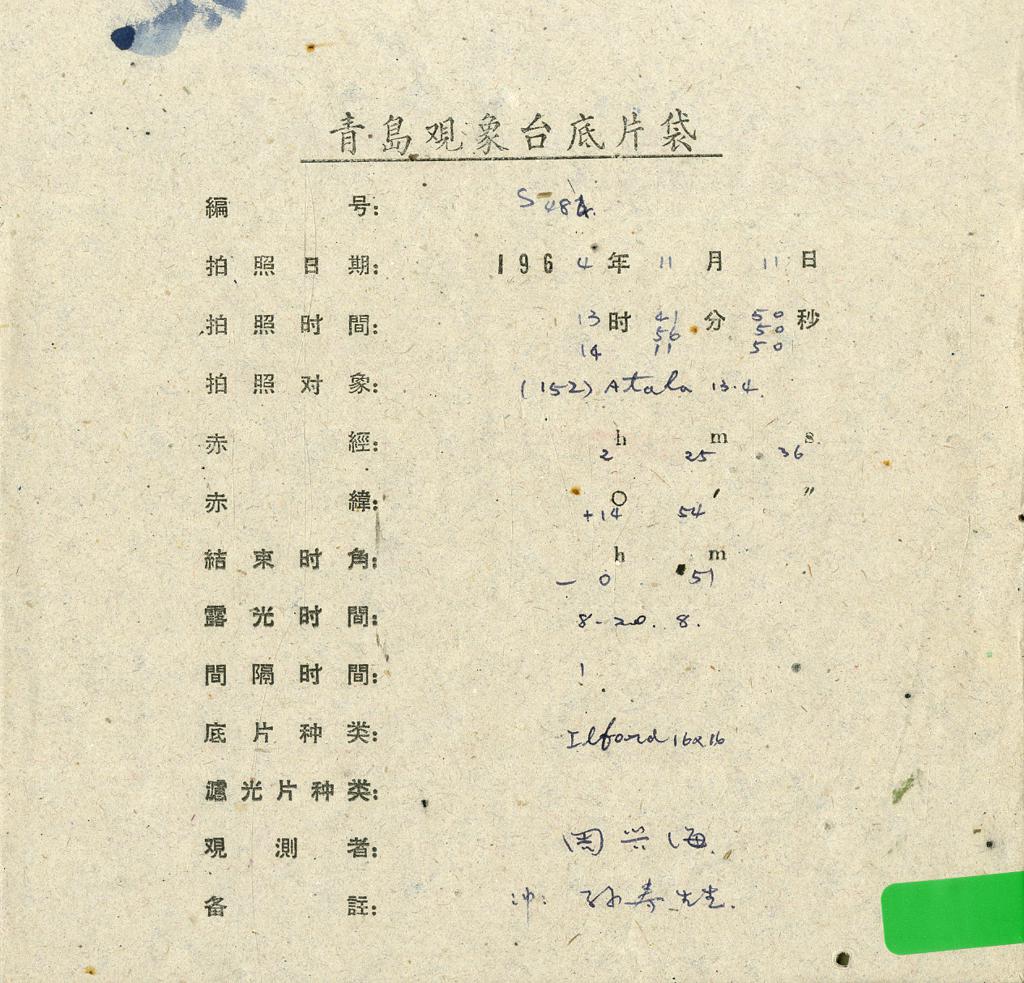 青島观象台底片袋
編号: S 48
拍照日期: 1964年11月11日
拍照时間: 13时41分50秒
56 50
14 11 50
拍照对象: (152) Atala 13.4
赤經: 2h 25m 36s
赤緯: +14° 54′ ″
結束时角: -0h 51m
露光时間: 8-20. 8.
間隔时間: 1
底片种类: Ilford 16x16
濾光片种类:
观測者: 周兴海
备註: 冲: 孙寿先生.